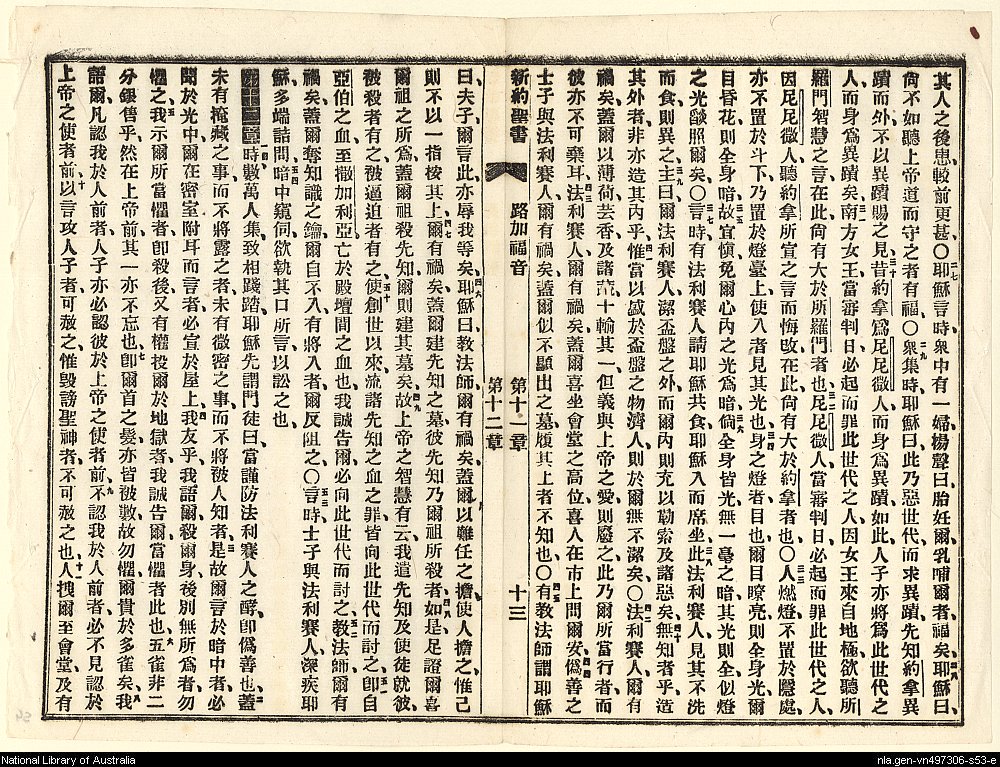 其人之後患較前更甚〇耶穌言時衆中有一婦揚聲曰胎妊爾乳哺爾者福矣耶穌曰
尚不如聽上帝道而守之者有福〇衆集時耶穌曰此乃惡世代而求異蹟先知約拿異
蹟而外不以異蹟賜之見昔約拿爲尼尼微人而身爲異蹟如此人子亦將爲此世代之
人而身爲異蹟矣南方女王當審判日必起而罪此世代之人因女王來自地極欲聽所
羅門智慧之言在此尚有大於所羅門者也尼尼微人當審判日必起而罪此世代之人
因尼尼微人聽約拿所宣之言而悔改在此尚有大於約拿者也〇人燃燈不置於隱處
亦不置於斗下乃置於燈臺上使入者見其光也身之燈者目也爾目瞭亮則全身光爾
目昏花則全身暗故宜慎免爾心內之光爲暗倘全身皆光無一毫之暗其光則全似燈
之光燄照爾矣〇言時有法利賽人請耶穌共食耶穌入而席坐此法利賽人見其不洗
而食則異之主曰爾法利賽人潔盃盤之外而爾內則充以勒索及諸惡矣無知者乎造
其外者非亦造其內乎惟當以盛於盃盤之物濟人則於爾無不潔矣〇法利賽人爾有
禍矣蓋爾以薄荷芸香及諸蔬十輸其一但義與上帝之愛則廢之此乃爾所當行者而
彼亦不可棄耳法利賽人爾有禍矣蓋爾喜坐會堂之高位喜人在市上問爾安僞善之
士子與法利賽人爾有禍矣蓋爾似不顯出之墓履其上者不知也〇有教法師謂耶穌
新約聖書 路加福音 第十一章 第十二章 十三
曰夫子爾言此亦辱我等矣耶穌曰教法師爾有禍矣蓋爾以難任之擔使人擔之惟己
則不以一指按其上爾有禍矣蓋爾建先知之墓彼先知乃爾祖所殺者如是足證爾喜
爾祖之所爲蓋爾祖殺先知爾則建其墓矣故上帝之智慧有云我遣先知及使徒就彼
被殺者有之被逼迫者有之使創世以來流諸先知之血之罪皆向此世代而討之卽自
亞伯之血至撒加利亞亡於殿壇間之血也我誠告爾必向此世代而討之教法師爾有
禍矣蓋爾奪知識之鑰爾自不入有將入者爾反阻之〇言時士子與法利賽人深疾耶
穌多端詰問暗中窺伺欲執其口所言以訟之也
第十二章時數萬人集致相踐踏耶穌先謂門徒曰當謹防法利賽人之酵卽僞善也蓋
未有掩藏之事而不將露之者未有微密之事而不將被人知者是故爾言於暗中者必
聞於光中爾在密室附耳而言者必宣於屋上我友乎我語爾殺爾身後別無所爲者勿
懼之我示爾所當懼者卽殺後又有權投爾於地獄者我誠告爾當懼者此也五雀非二
分銀售乎然在上帝前其一亦不忘也卽爾首之髮亦皆被數故勿懼爾貴於多雀矣我
語爾凡認我於人前者人子亦必認彼於上帝之使者前不認我於人前者必不見認於
上帝之使者前以言攻人子者可赦之惟毀謗聖神者不可赦之也人拽爾至會堂及有
National Library of Australia
nla.gen-vn497306-s53-e